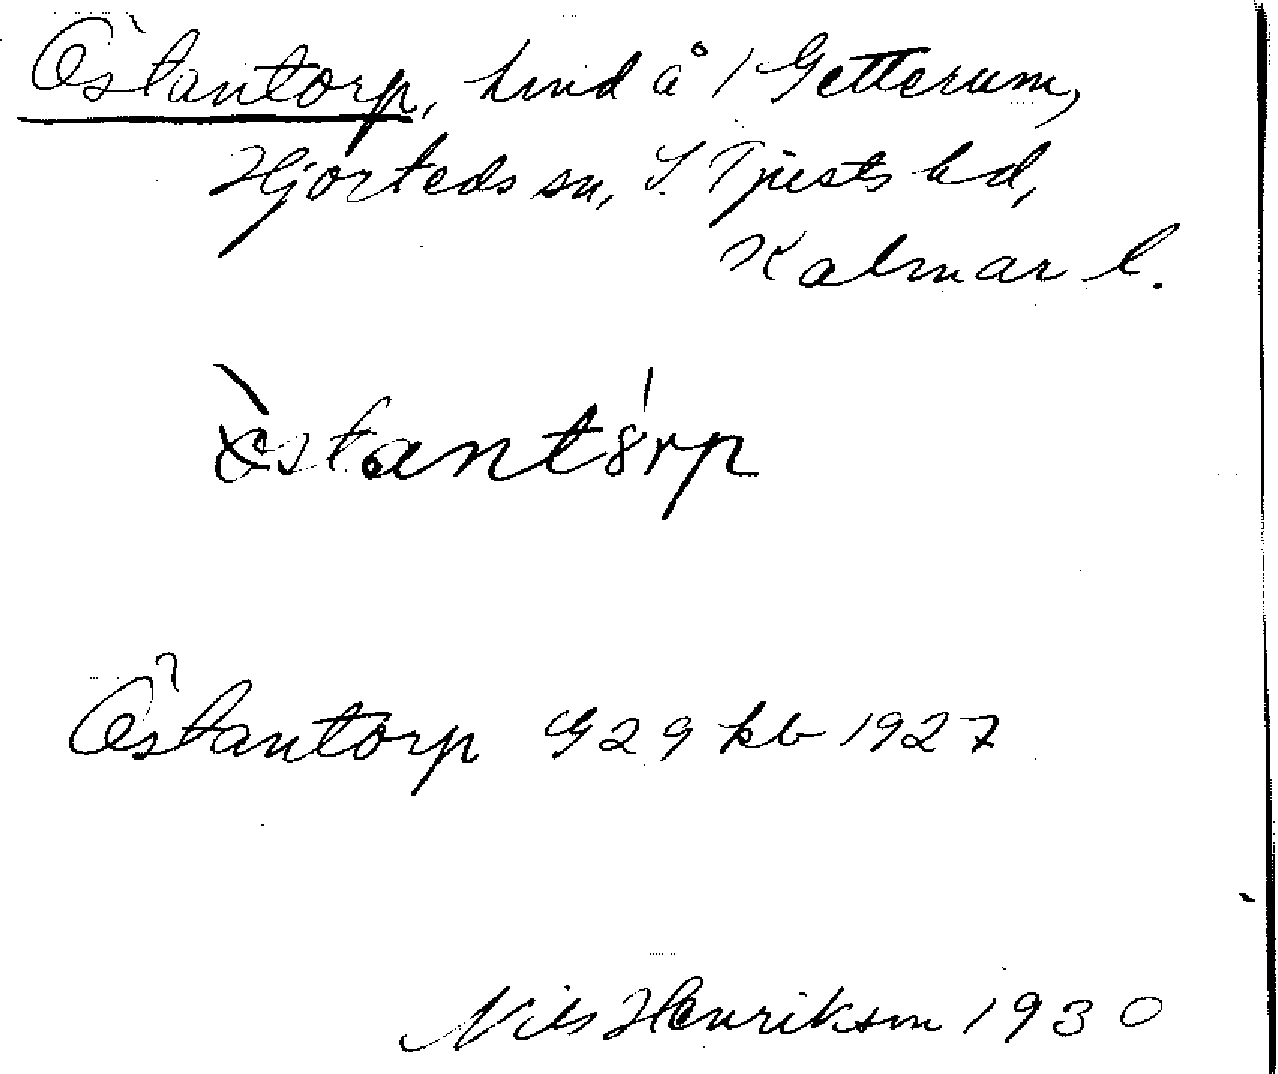 Östantorp, lind å 1 Getterum,
Hjorteds sn, S. Tjusts hd,
Kalmar l.
östantörp
Östantorp 929 kb 1927
Nils Henrikson 1930